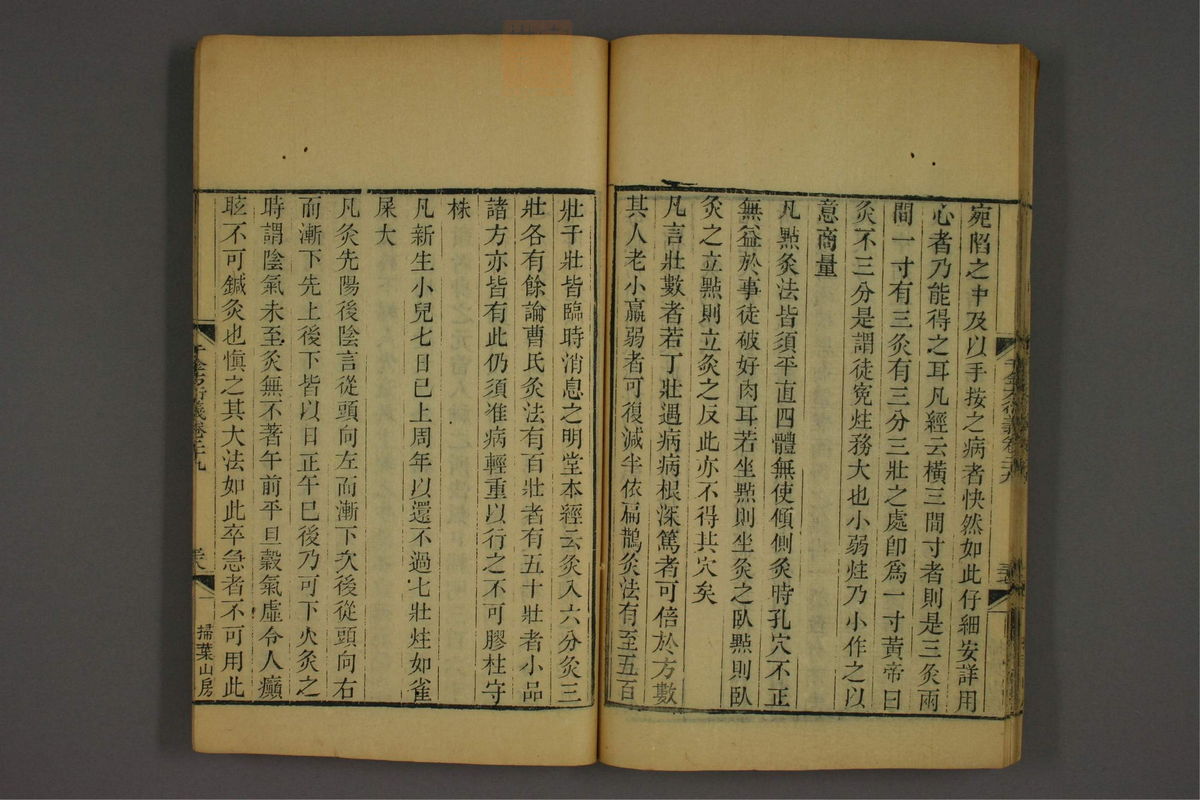 宛陷之中及以手按之病者快然如此仔細安詳用
心者乃能得之耳凡經云橫三間寸者則是三灸兩
間一寸有三灸有三分三壯之處卽爲一寸黃帝曰
灸不三分是謂徒寃炷務大也小弱炷乃小作之以
意商量
凡㸃灸法皆須平直四體無使傾側灸時孔穴不正
無益於事徒破好肉耳若坐㸃則坐灸之臥㸃則臥
灸之立㸃則立灸之反此亦不得其穴矣
凡言壯數者若丁壯遇病病根深篤者可倍於方數
其人老小羸弱者可復減半依扁鵲灸法有至五百
壯千壯皆臨時消息之明堂本經云灸入六分灸三
壯各有餘論曹氏灸法有百壯者有五十壯者小品
諸方亦皆有此仍須准病輕重以行之不可膠柱守
株
凡新生小兒七日已上周年以還不過七壯炷如雀
屎大
凡灸先陽後陰言從頭向左而漸下次後從頭向右
而漸下先上後下皆以日正午已後乃可下火灸之
時謂陰氣未至灸無不著午前平旦穀氣虛令人癲
眩不可鍼灸也愼之其大法如此卒急者不可用此
千金方衍義卷二十九
掃葉山房